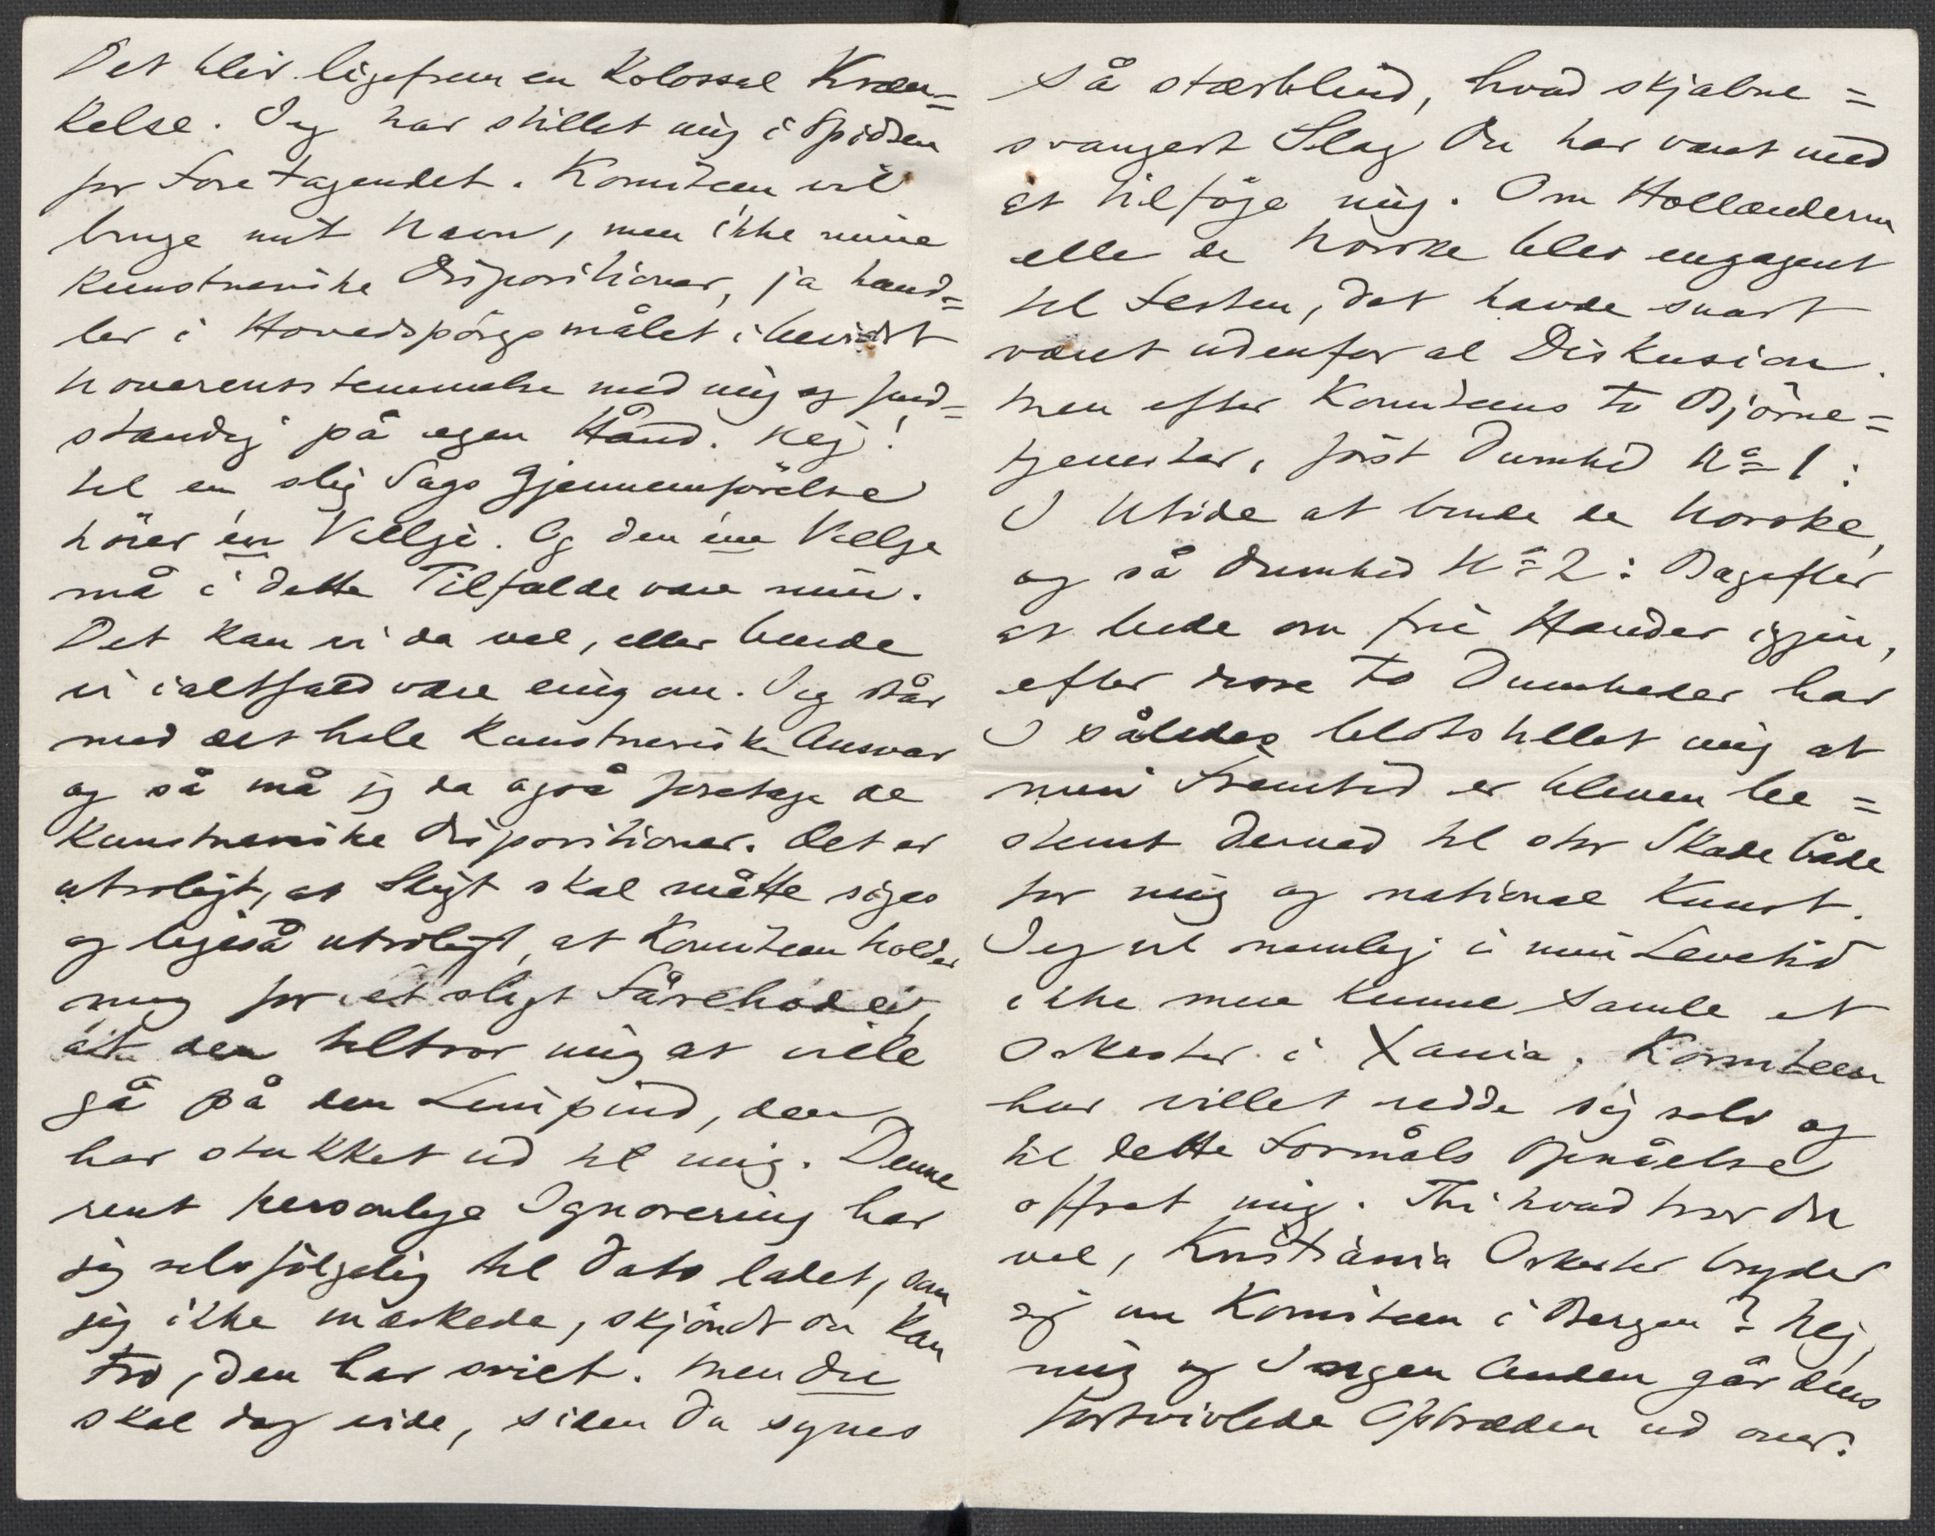 Det blir ligefrem en Kolossal Kræn=
kelse. Jeg har stillet mig i Spidsen
for Foretagendet. Komiteen vil
bruge mit Navn, men ikke mine
kunstneriske Dispositioner, ja hand=
ler i Hovedspörgsmålet i bevidst
Uoverensstemmelse med mig og fuld=
standig på egen Hånd. Nej!
til en slig Sags Gjennemförelse
hörer én Vilje. Og den éne Vilje
må i dette Tilfælde være min.
Det kan vi da vel, eller burde
vi ialtfald være enig om. Jeg står
med det hele kunstneriske Ansvar
og så må jeg da også foretage de
kunstneriske Dispositioner. Det er
utroligt, at Sligt skal måtte siges
og ligeså utroligt, at Komiteen holder
mig for et sligt Fårehode,
at den tiltror mig at ville
gå på den Limpind, den
har stukket ud til mig. Denne
rent personlige Ignorering har
jeg selvfölgelig til Dato ladet, som
jeg ikke mærkede, skjöndt du kan
tro, den har sviet. Men du
skal dog vide, siden du synes
så stærblind, hvad skjæbne=
svangert Slag Du har været med
at tilföje mig. Om Hollænderne
eller de Norske blev engageret
til Festen, det havde snart
været udenfor al Diskusion.
Men efter Komiteens to Björne=
tjenester, först Dumhed No 1:
I Utide at binde de Norske,
og så Dumhed No 2: Bagefter
at bede om frie Hænder igjen,
efter disse to Dumheder har
I således blotstillet mig at
min Fremtid er bleven be=
stemt derved til stor Skade både
for mig og national Kunst.
Jeg vil nemlig i min Levetid
ikke mere kunne samle et
Orkester i Xania. Komiteen
har villet redde sig selv og
til dette Formåls Opnåelse
offret mig. Thi hvad tror du
vel, Kristiania Orkester bryder
sig om Komiteen i Bergen? Nej,
mig og Ingen Anden går dens
fortvivlede Optræden ud over.